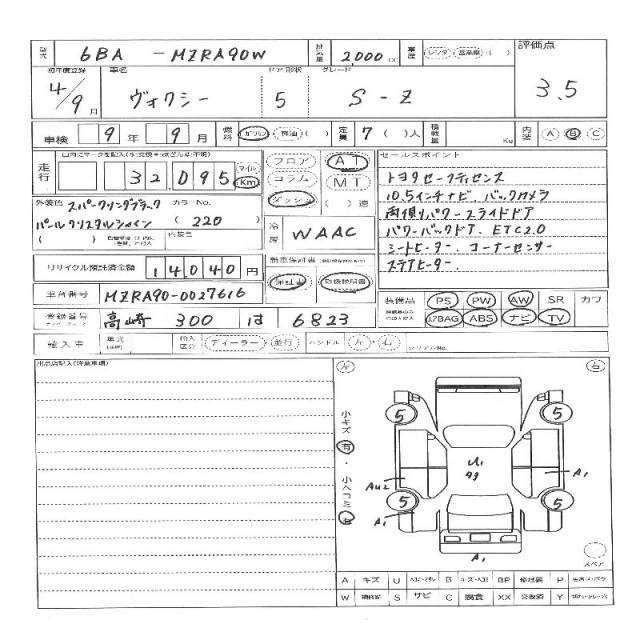 型式 6BA - MZRA90W 排気量 2,000 cc 車歴 レンタ 営業車 ( ) 評価点
初年度登録 車名 ドア形状 グレード
4/9月 ヴォクシー 5 S-Z 3.5
車検 9年 9月 燃料 ガソリン 軽油 ( ) 定員 7( )人 積載量 Kg 内装 A B C
走行 32,095 マイル Km フロア AT セールスポイント
コラム MT トヨタセーフティセンス
ダッシュ ( )速 10.5インチナビ、バックカメラ
外装色 スパークリングブラック カラーNo. 両側パワースライドドア
パールクリスタルシャイン ( 220 ) 冷房 WAAC パワーバックドア、ETC2.0
( ) 内装色 シートヒーター、コーナーセンサー
リサイクル預託済金額 14,040円 新車保証書 保証書 取扱説明書 ステアヒーター、
車台番号 MZRA90-0027616 装備品 PS PW AW SR カワ
登録番号 高崎 300 は 6823 エアBAG ABS ナビ TV
輸入車 年式 輸入区分 ディーラー・並行 ハンドル 左・右 シリアルNo.
出品店記入(注意事項)
左 右
小キズ 有・小ヘコミ 有
5 5
U1
AU2 A1
5 5
A1
A1
スペア
A キズ U B BP 修理跡 P
W S サビ C 腐食 XX 交換済 Y